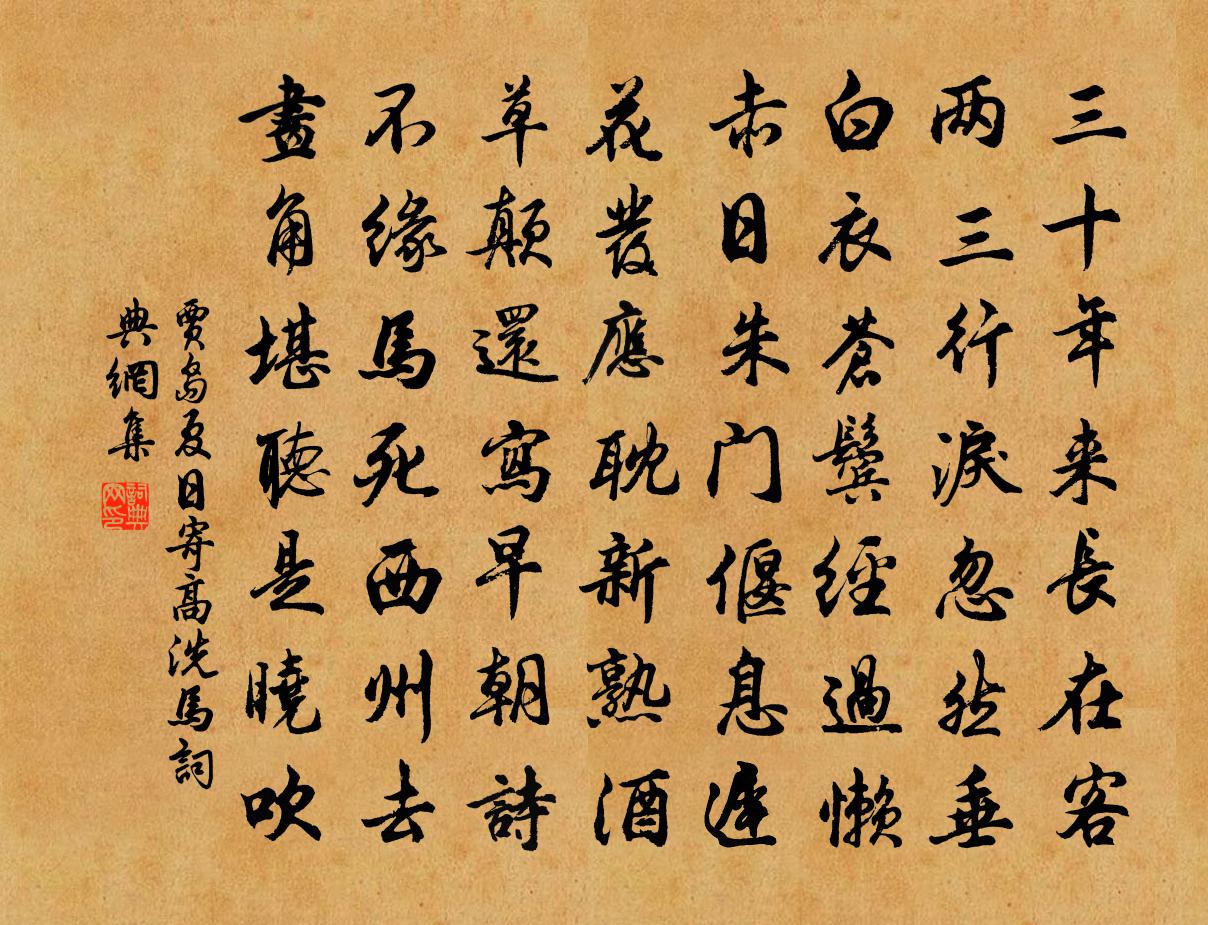 三十年来長在客
两三行淚忽然垂
白衣蒼鬢經過懶
赤日朱门偃息遲
花發應耽新熟酒
草顛還寫早朝詩
不緣馬死西州去
畫角堪聽是曉吹
賈島夏日寄高洗馬詞
典網集
詞典
网印